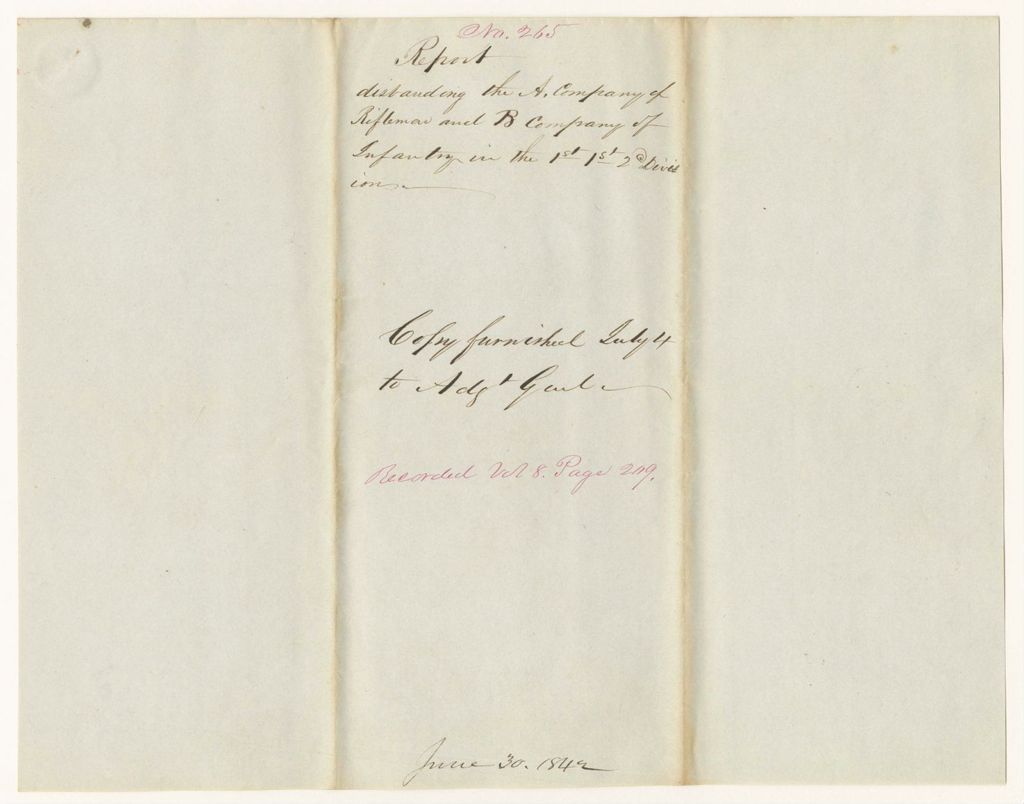 No. 265
Report
disbanding the A. Company of
Riflemen and B Company of
Infantry in the 1st 1st 2d Divis
ions
Copy furnished July 4
to Adgt Genl
Recorded Vol 8. Page 209.
June 30. 1842